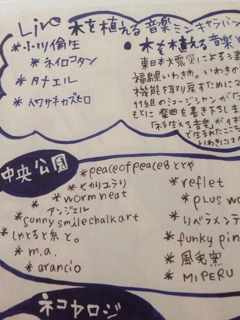 Live 木を植える音楽ミンキャラバン
*小川倫生
*ネイロワタン
*タナエル
*ムワサキカズヒロ
・木を植える音楽
東日本大震災による
福島県いわき市。いわきの
機能を取り戻すために
11組のミュージシャンが「
もとに楽曲を書き下ろしま
「木を植える音楽」が
で生まれた
中央公園
*peaceofpeace8ととや
*ヒカリユラリ
*worm neat
タンジェル
*sunny smile chalkart
*しゃとると糸と。
*m.a.
*arancio
*reflet
*plus wo
*リベラメンテ
*funky pin
*風来窯
*MIPERU
ネコヤロジ